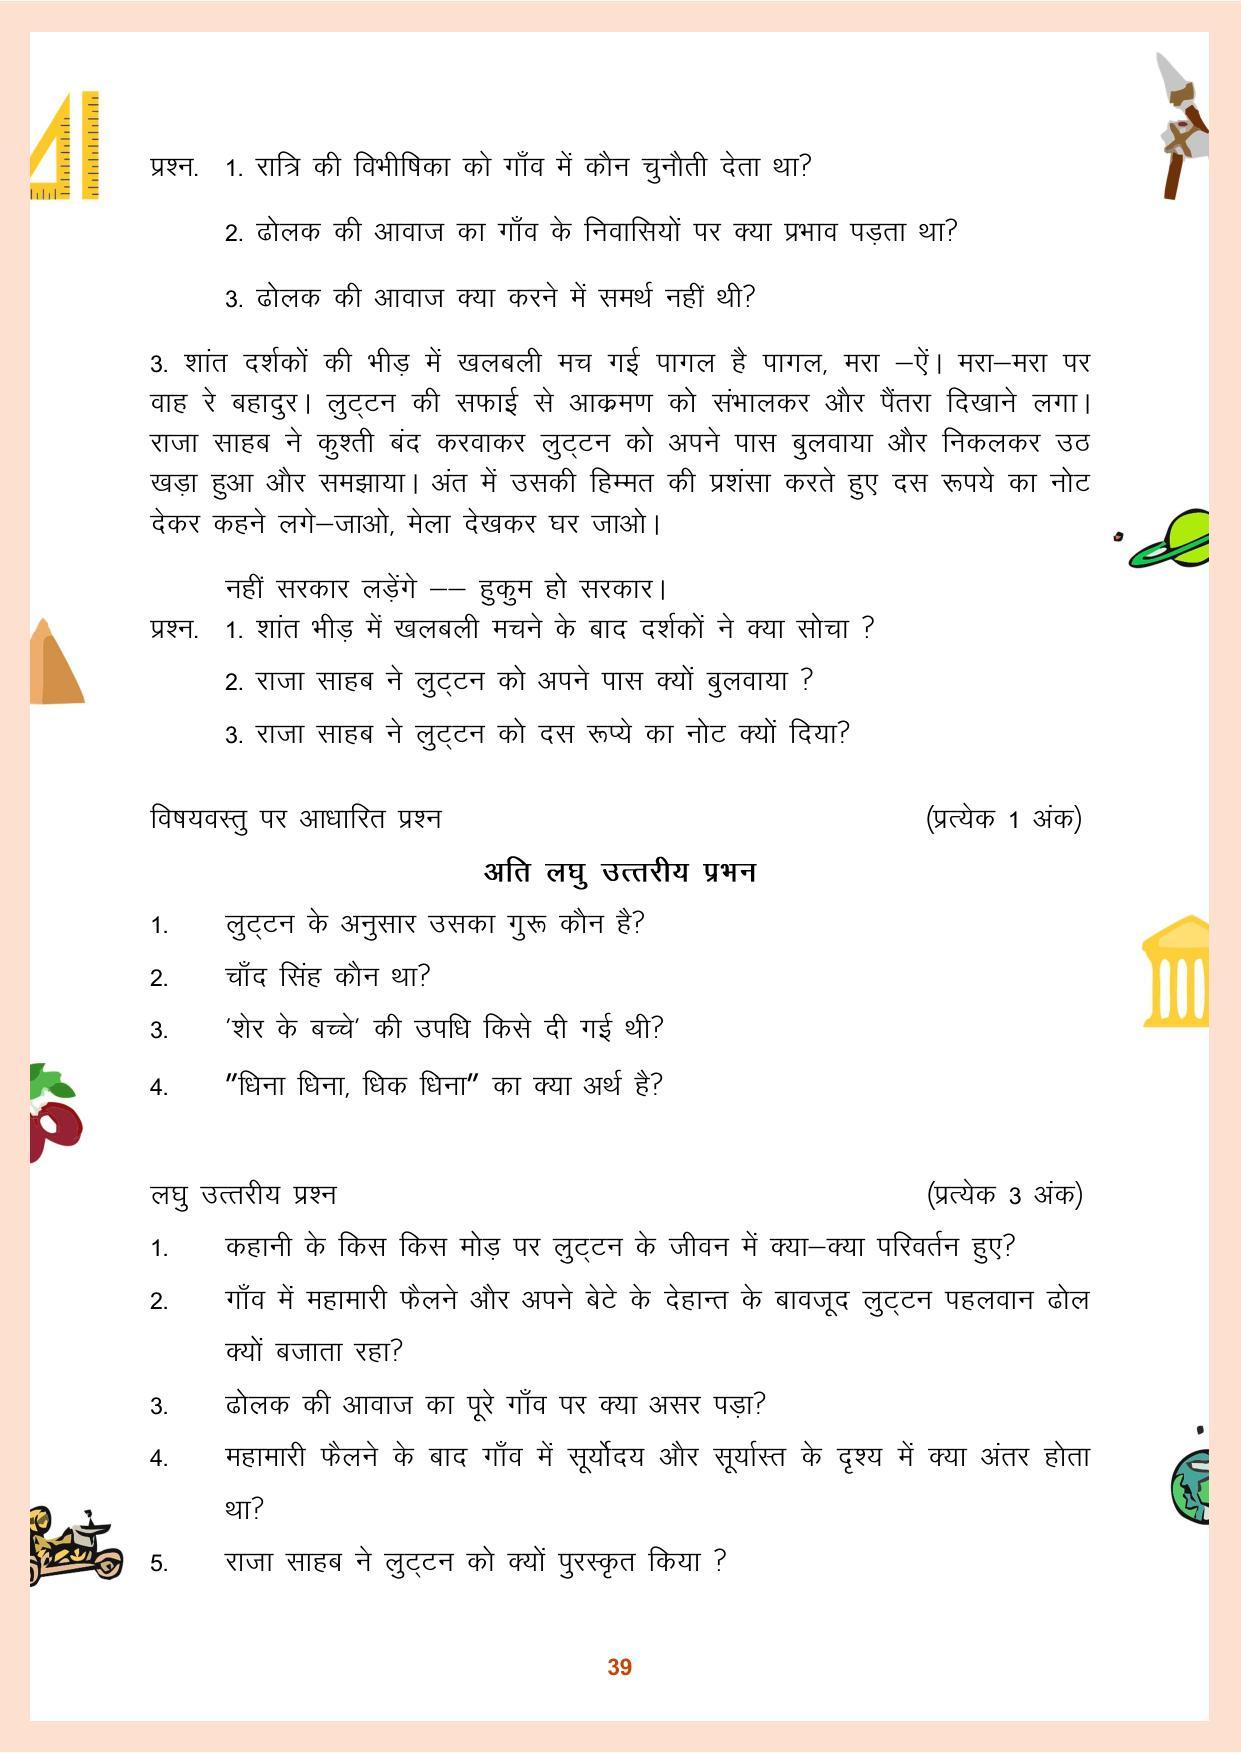 प्रश्न. 1. रात्रि की विभीषिका को गाँव में कौन चुनौती देता था?
2. ढोलक की आवाज का गाँव के निवासियों पर क्या प्रभाव पड़ता था?
3. ढोलक की आवाज क्या करने में समर्थ नहीं थी?
3. शांत दर्शकों की भीड़ में खलबली मच गई पागल है पागल, मरा –ऐं। मरा–मरा पर
वाह रे बहादुर। लुट्टन की सफाई से आक्रमण को संभालकर और पैंतरा दिखाने लगा।
राजा साहब ने कुश्ती बंद करवाकर लुट्टन को अपने पास बुलवाया और निकलकर उठ
खड़ा हुआ और समझाया। अंत में उसकी हिम्मत की प्रशंसा करते हुए दस रूपये का नोट
देकर कहने लगे–जाओ, मेला देखकर घर जाओ।
नहीं सरकार लड़ेंगे –– हुकुम हो सरकार।
प्रश्न. 1. शांत भीड़ में खलबली मचने के बाद दर्शकों ने क्या सोचा ?
2. राजा साहब ने लुट्टन को अपने पास क्यों बुलवाया ?
3. राजा साहब ने लुट्टन को दस रूप्ये का नोट क्यों दिया?
विषयवस्तु पर आधारित प्रश्न (प्रत्येक 1 अंक)
अति लघु उत्तरीय प्रभन
1. लुट्टन के अनुसार उसका गुरू कौन है?
2. चाँद सिंह कौन था?
3. ‘शेर के बच्चे‘ की उपधि किसे दी गई थी?
4. "धिना धिना, धिक धिना" का क्या अर्थ है?
लघु उत्तरीय प्रश्न (प्रत्येक 3 अंक)
1. कहानी के किस किस मोड़ पर लुट्टन के जीवन में क्या–क्या परिवर्तन हुए?
2. गाँव में महामारी फैलने और अपने बेटे के देहान्त के बावजूद लुट्टन पहलवान ढोल
क्यों बजाता रहा?
3. ढोलक की आवाज का पूरे गाँव पर क्या असर पड़ा?
4. महामारी फैलने के बाद गाँव में सूर्योदय और सूर्यास्त के दृश्य में क्या अंतर होता
था?
5. राजा साहब ने लुट्टन को क्यों पुरस्कृत किया ?
39